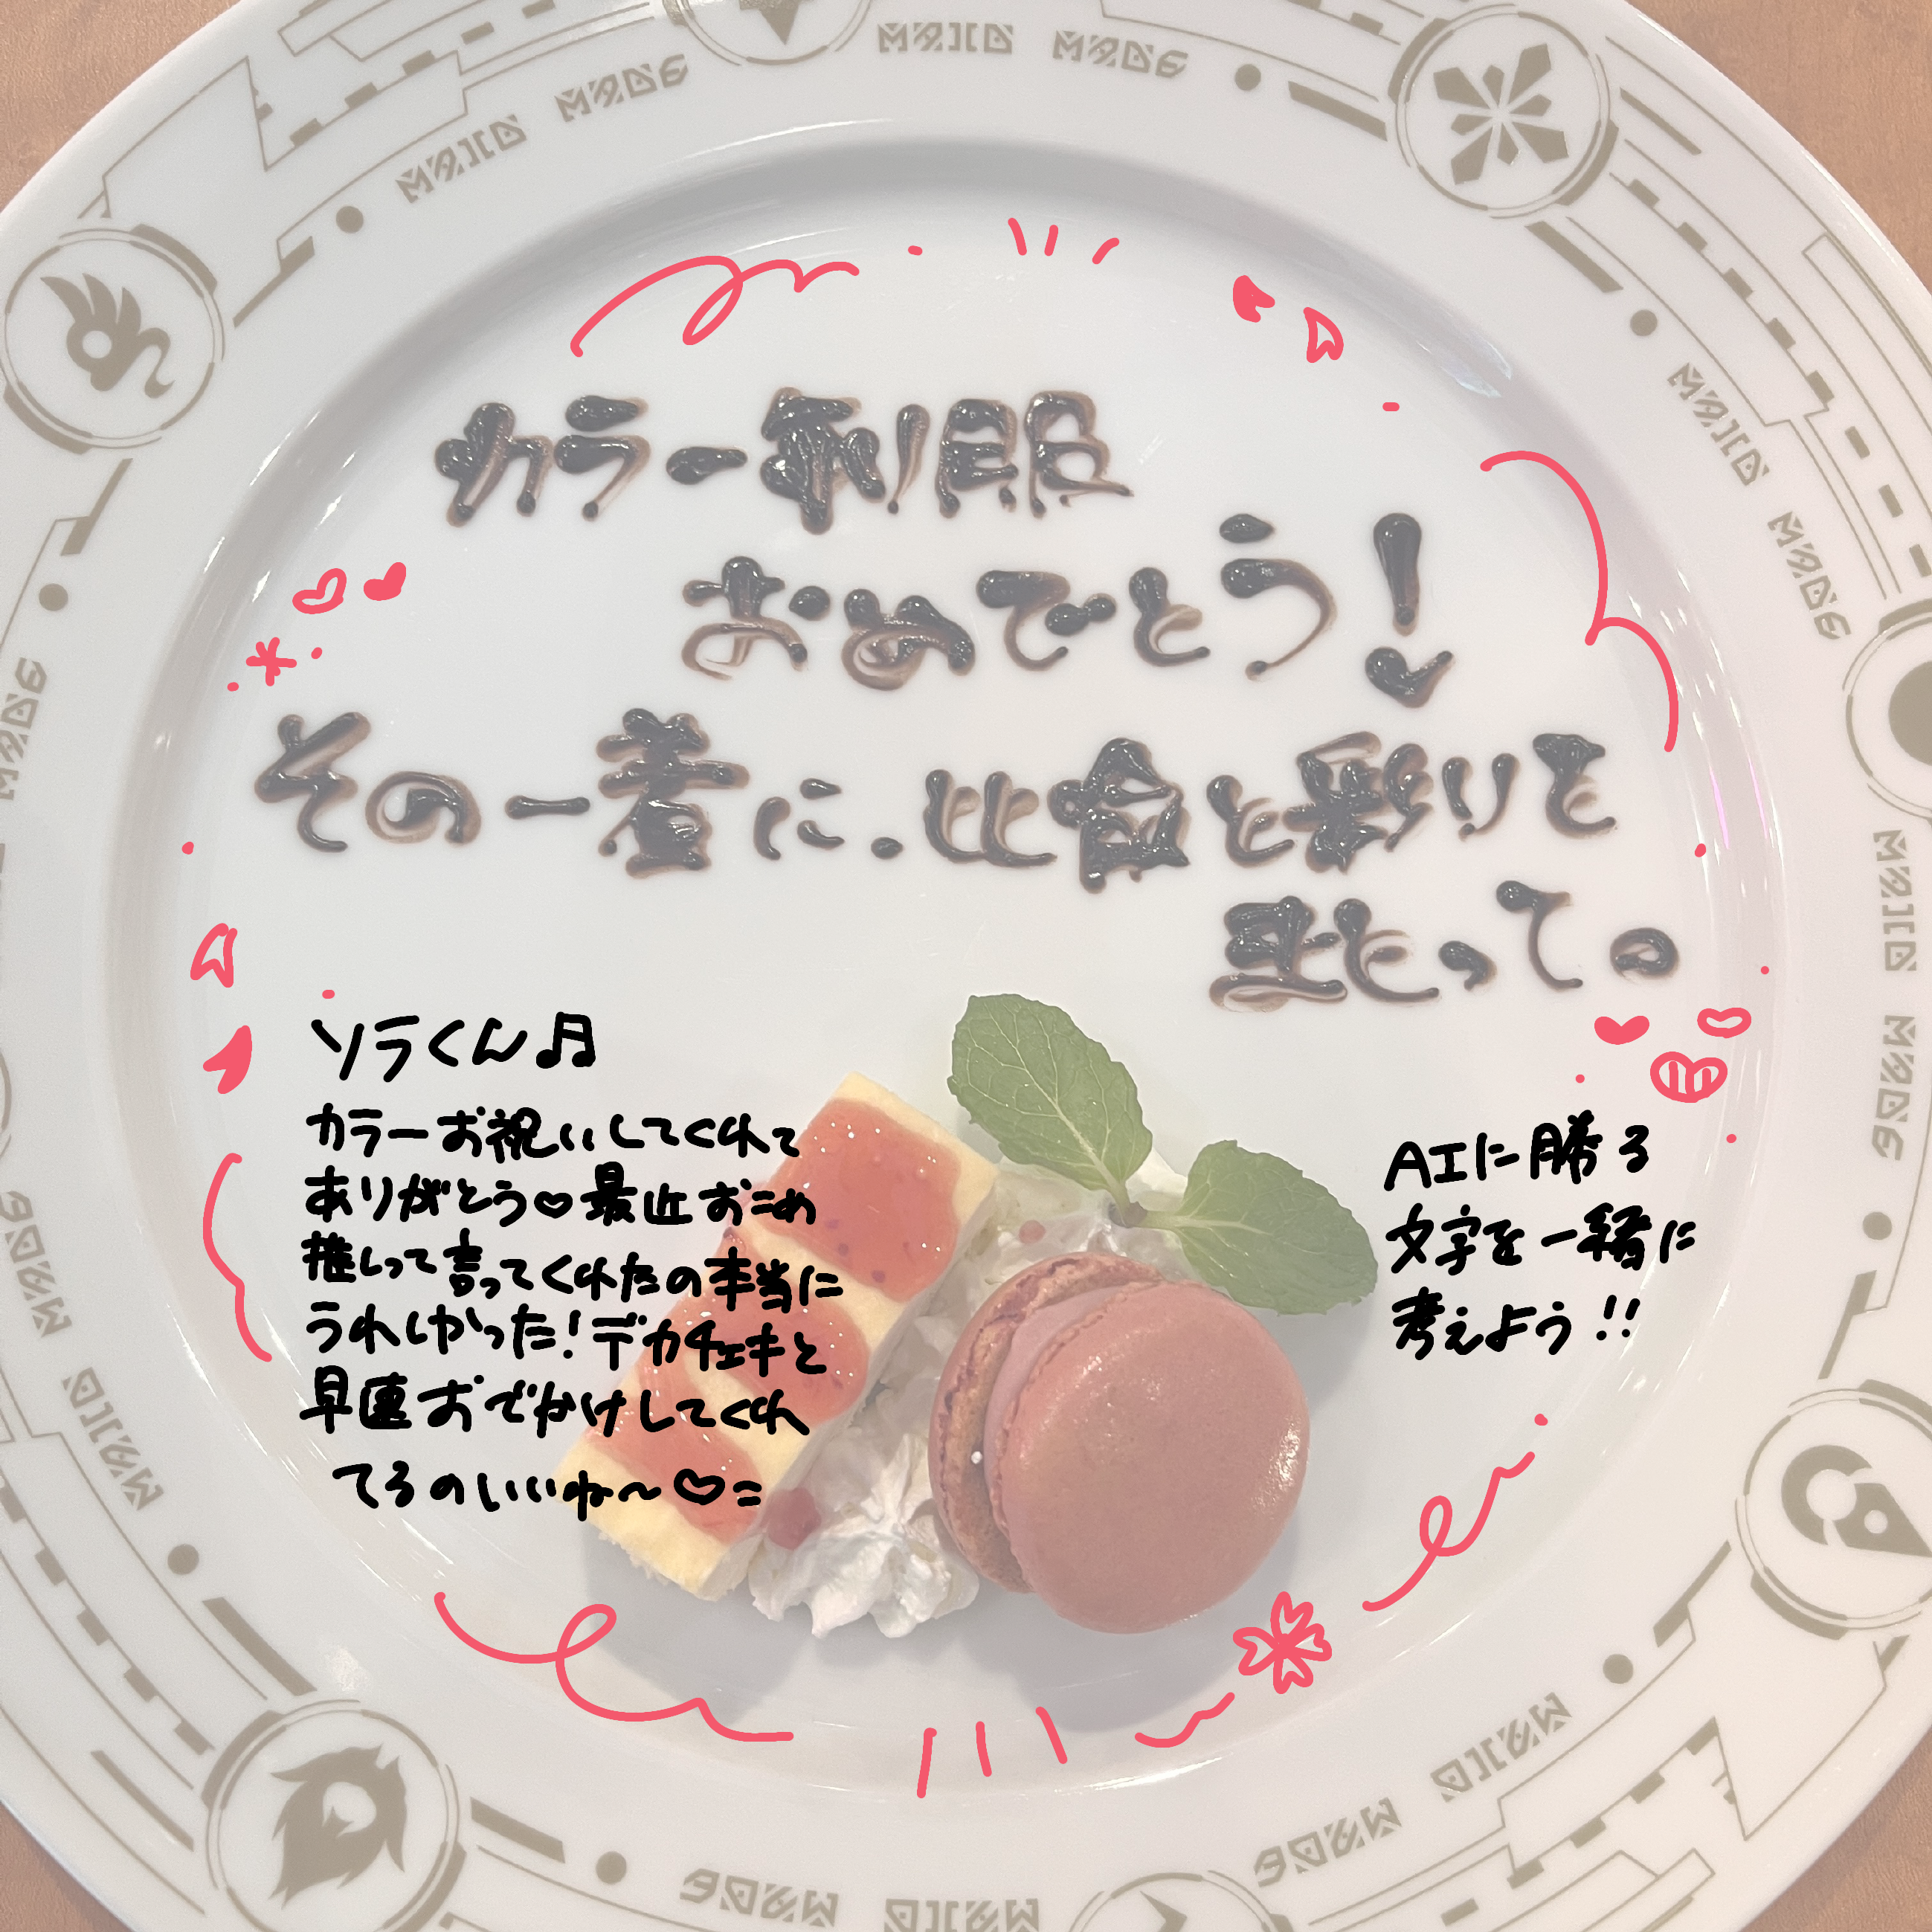 カラー制服
おめでとう!
その一着に、比喩と彩りを
纏って。
ソラくん♬
カラーお祝いしてくれて
ありがとう♡最近おこめ
推しって言ってくれたの本当に
うれしかった!デカチェキと
早速おでかけしてくれ
てるのいいね〜♡=
AIに勝る
文字を一緒に
考えよう!!
MAID MADE
MAID MADE
MAID MADE
MAID MADE
MAID MADE
MAID MADE
MAID MADE